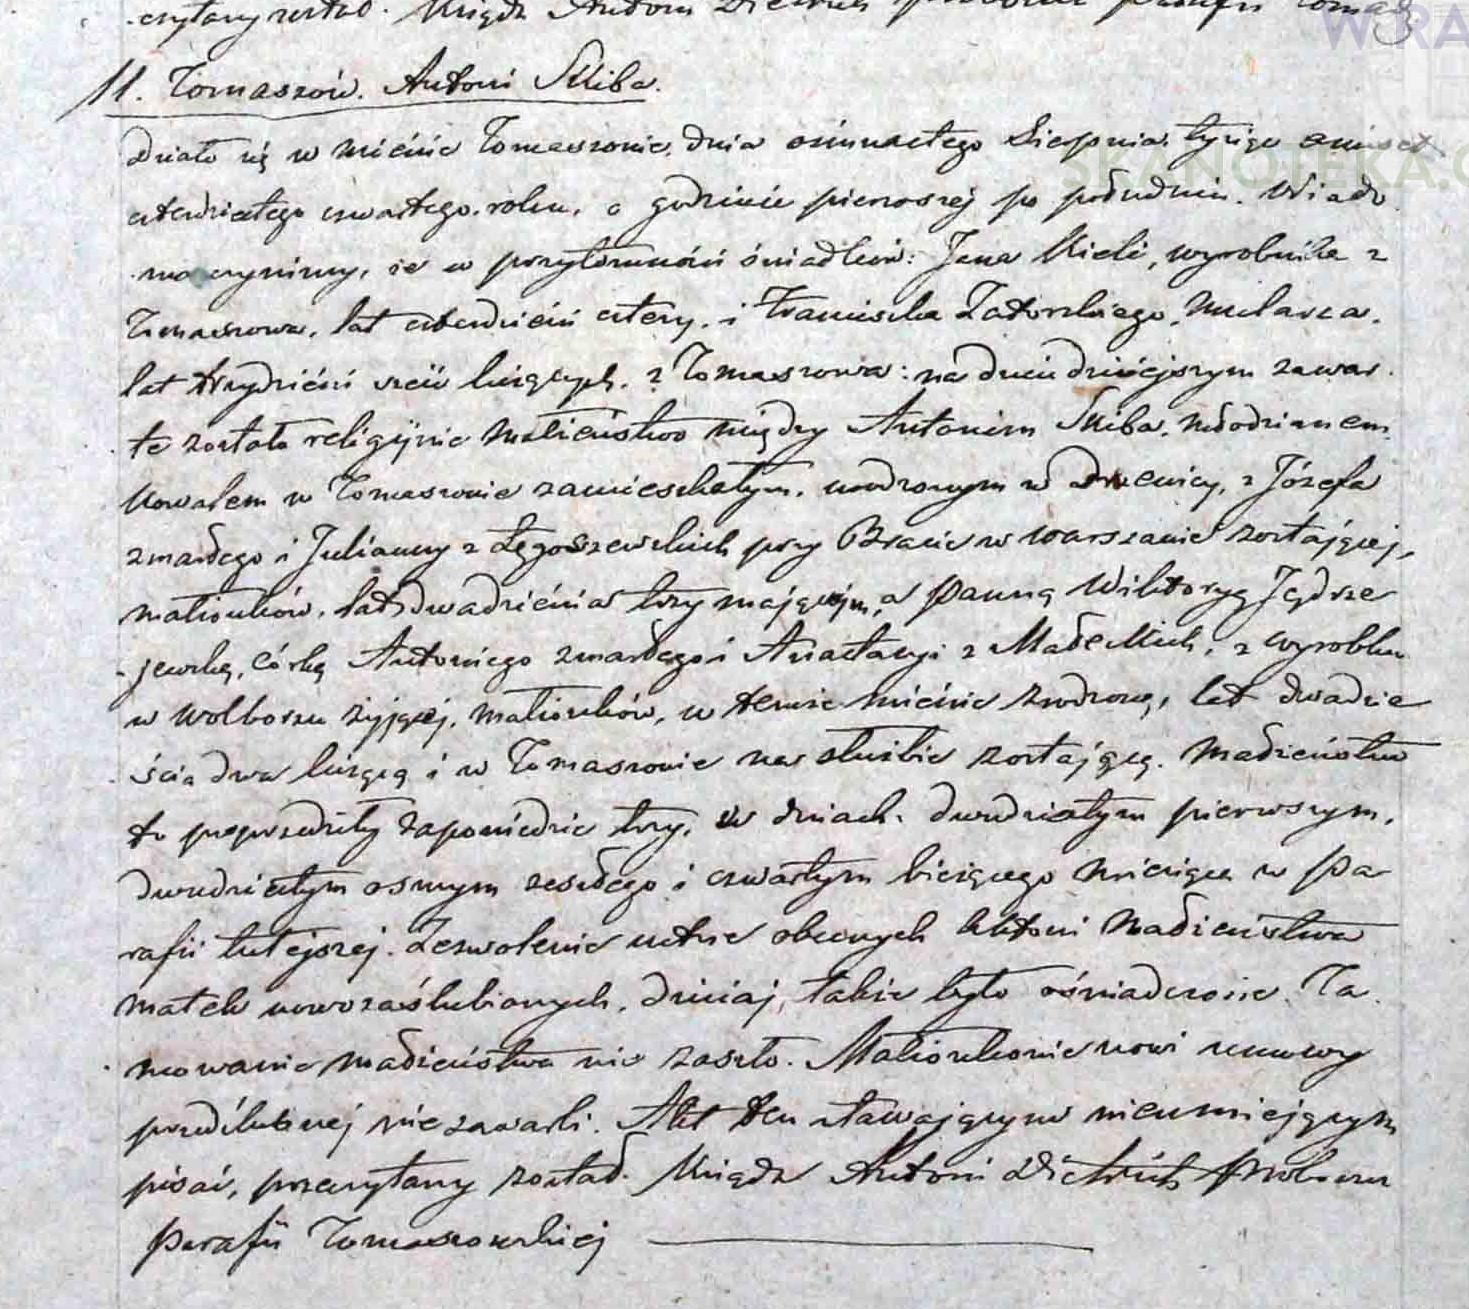 czytany został. Ksiądz Antoni
W RA
11. Tomaszów. Antoni Skiba.
SKANOTEKA.
Działo się w mieście Tomaszowie, dnia ośmnastego Sierpnia, tysiąc ośmset
czterdziestego czwartego roku, o godzinie pierwszej po południu. Wiado
mo czynimy, że w przytomności świadków: Jana Kieli, wyrobnika z
Tomaszowa, lat czterdzieści cztery, i Franciszka Zatorskiego, mularza,
lat trzydzieści sześć liczących, z Tomaszowa: na dniu dzisiejszym zawar
te zostało religijnie małżeństwo między Antonim Skiba, młodzianem,
kowalem w Tomaszowie zamieszkałym, urodzonym w, z Józefa
zmarłego i Julianny z Łęgoszewskich przy Bracie w Warszawie zostającej,
małżonków, lat dwadzieścia trzy mającym, a Panną Wiktoryą Jędrze
jewską, córką Antoniego zmarłego i Anastazyi z Małeckich, z wyrobku
w Wolborzu żyjącej, małżonków, w temże mieście zrodzoną, lat dwadzie
ścia dwa liczącą i w Tomaszowie na służbie zostającą. Małżeństwo
to poprzedziły zapowiedzie trzy, w dniach dwudziestym pierwszym,
dwudziestym osmym zeszłego i czwartym bieżącego miesiąca w Pa
rafii tutejszej. Zezwolenie ustne obecnych Aktowi Małżeństwa
matek nowozaślubionych, dzisiaj, takie było oświadczone. Ta
mowanie małżeństwa nie zaszło. Małżonkowie nowi umowy
przedślubnej nie zawarli. Akt ten stawającym nieumiejącym
pisać, przeczytany został. Ksiądz Antoni Dietrich Proboszcz
Parafii Tomaszowskiej